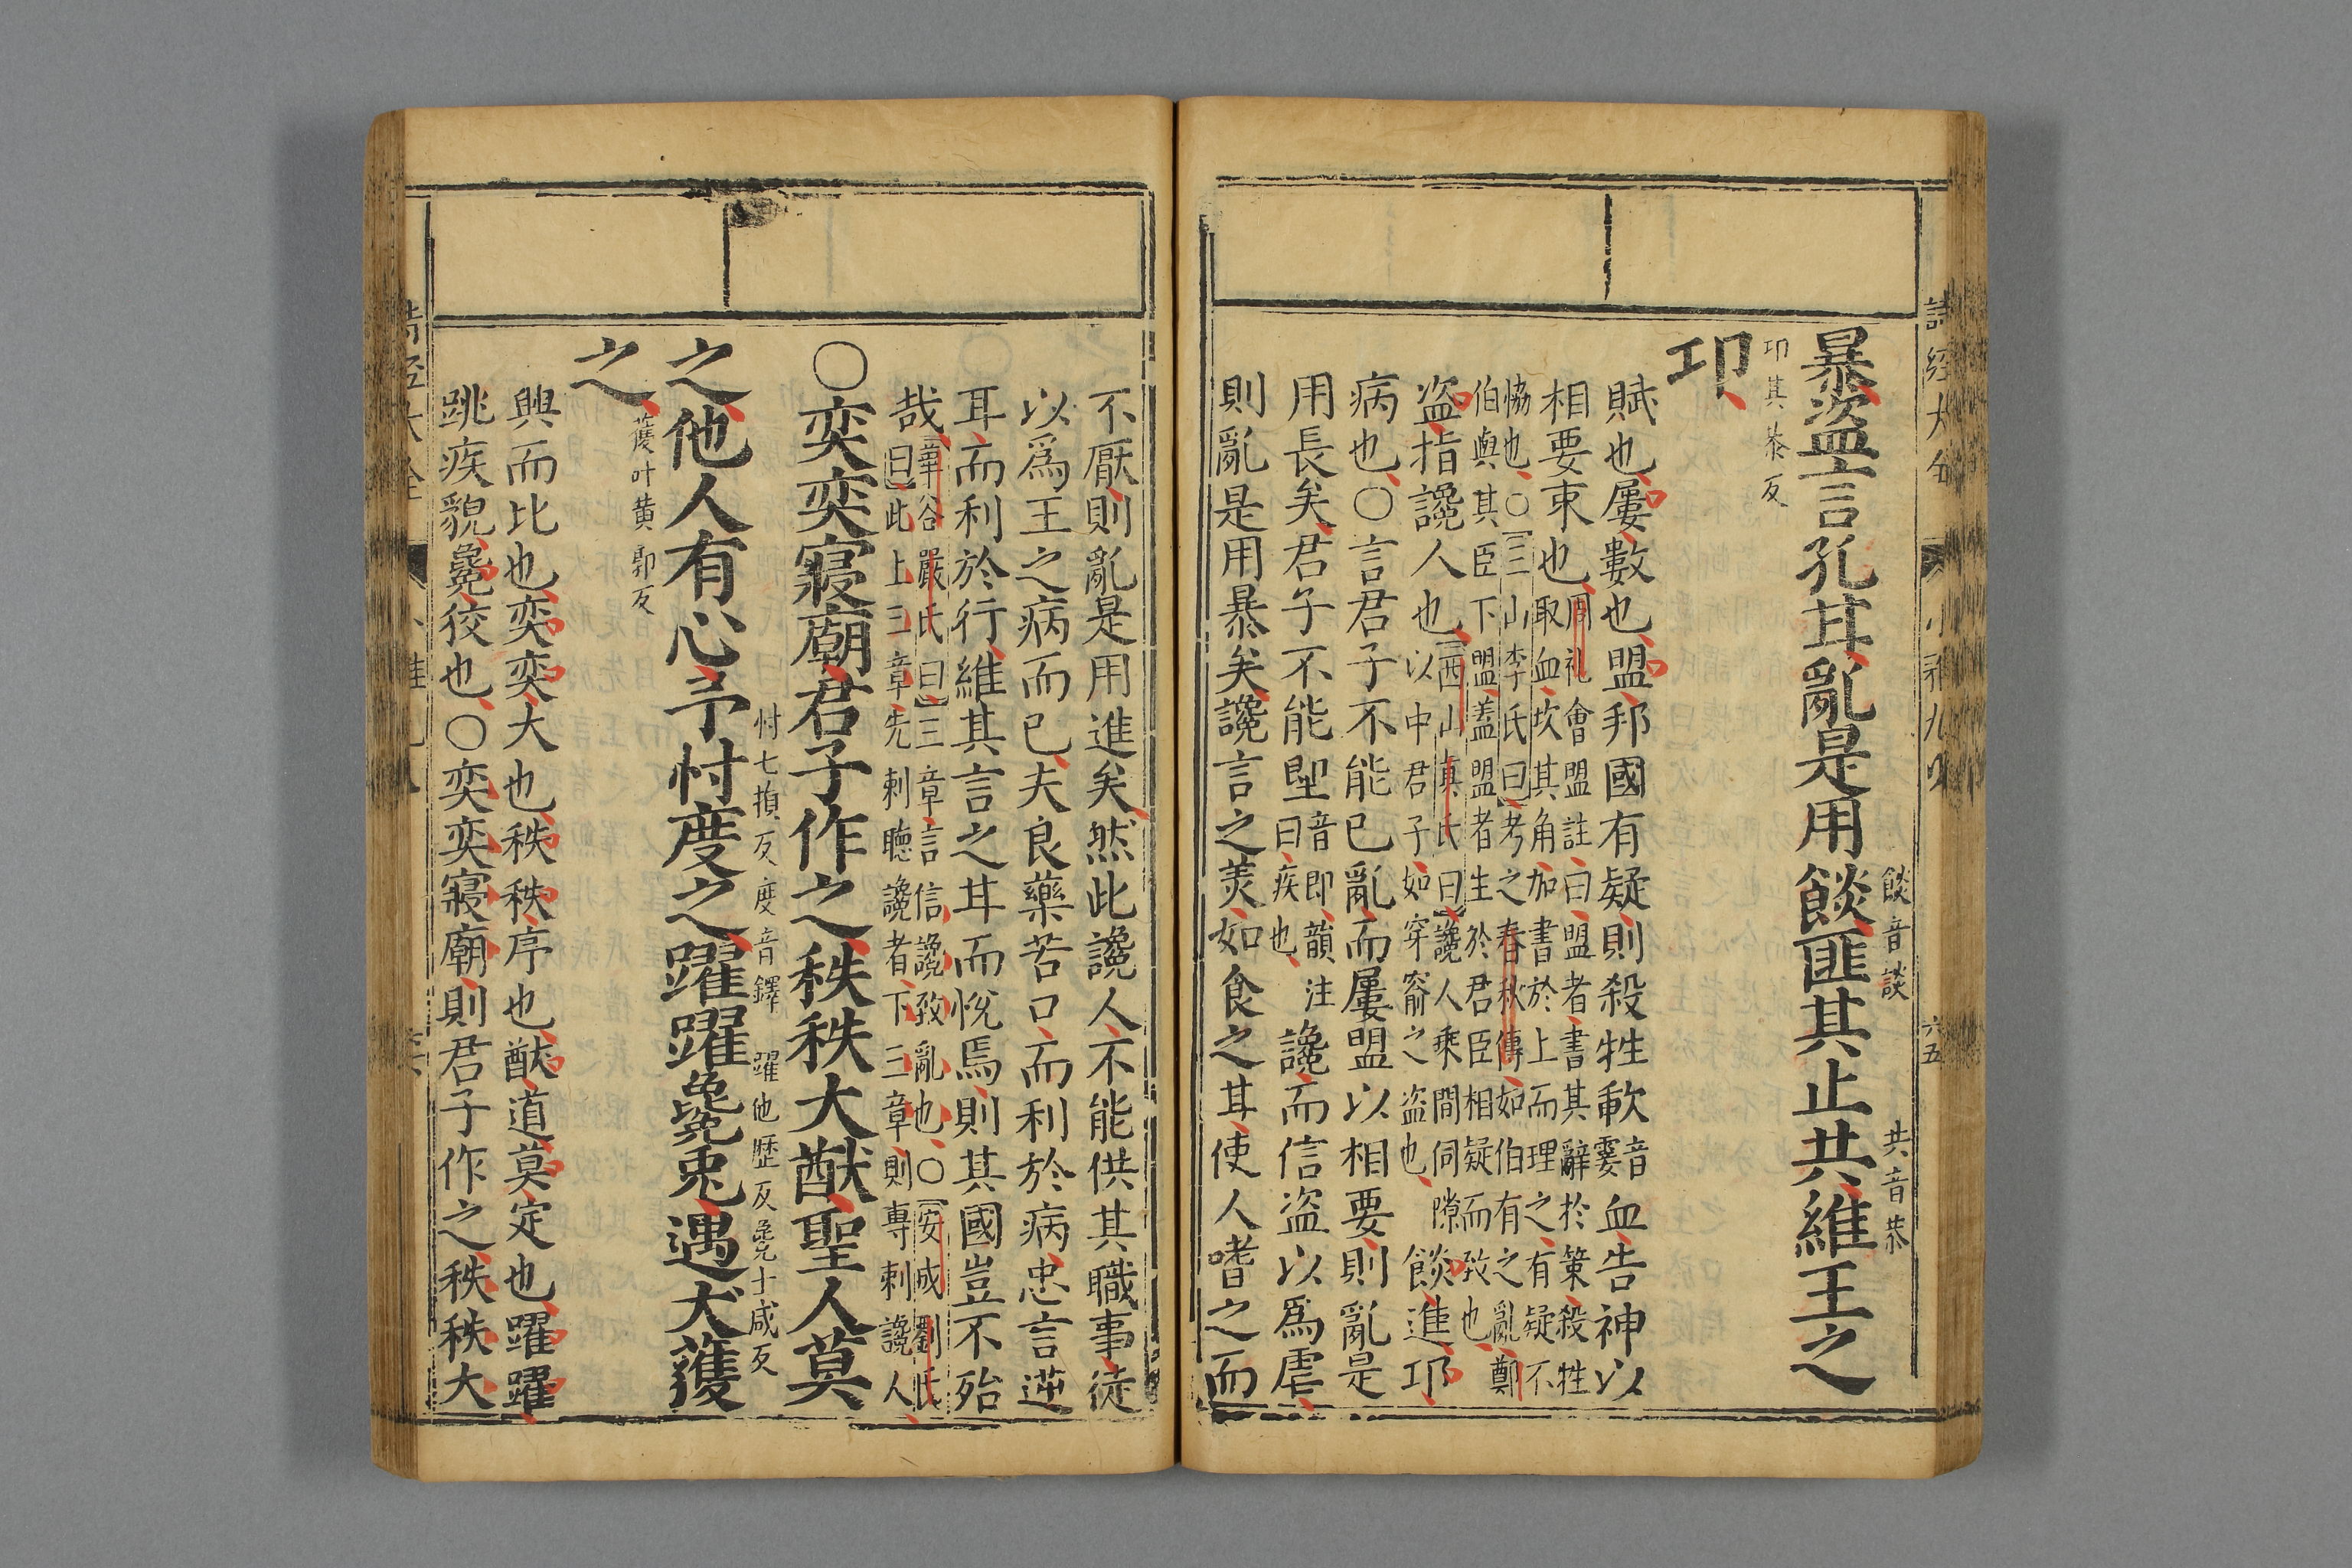 詩經大全 小雅九 六五
暴盜言孔甘亂是用餤匪其止共維王之
餤音談 共音恭
邛
邛其恭反
賦也屢數也盟邦國有疑則殺牲歃音霎血告神以
相要束也周礼會盟註曰盟者書其辭於策殺牲
取血坎其角加書於上而理之有疑不
恊也〇三山李氏曰考之春秋傳如伯有之亂鄭
伯與其臣下盟盖盟者生於君臣相疑而致也
盗指讒人也西山真氏曰讒人乘間伺隙
以中君子如穿窬之盗也餤進邛
病也〇言君子不能已亂而屢盟以相要則亂是
用長矣君子不能堲音即韻注曰疾也讒而信盜以爲虐
則亂是用暴矣讒言之羙如食之甘使人嗜之而
不厭則亂是用進矣然此讒人不能供其職事徒
以爲王之病而已夫良藥苦口而利於病忠言逆
耳而利於行維其言之甘而悅焉則其國豈不殆
哉華谷嚴氏曰三章言信讒致亂也〇安成劉氏
曰此上三章先刺聴讒者下三章則專刺讒人
〇奕奕寢廟君子作之秩秩大猷聖人莫
之他人有心予忖度之躍躍毚兎遇犬獲
忖七損反 度音鐸 躍他歴反 毚士咸反
之
獲叶黄郭反
興而比也奕奕大也秩秩序也猷道莫定也躍躍
跳疾貌毚狡也〇奕奕寢廟則君子作之秩秩大